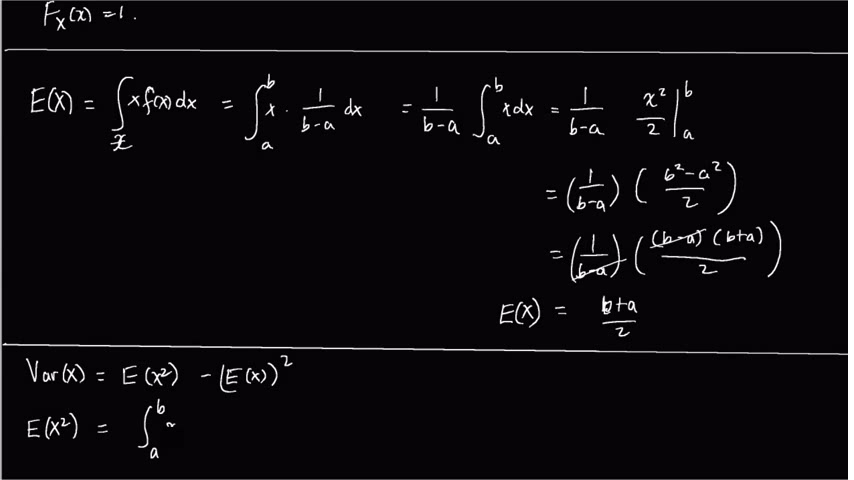 F_X(x) = 1.
E(X) = ∫_𝒳 x f(x) dx = ∫_a^b x · 1/(b-a) dx = 1/(b-a) ∫_a^b x dx = 1/(b-a) x²/2 |_a^b
= (1/(b-a)) ((b²-a²)/2)
= (1/(b-a)) ((b-a)(b+a)/2)
E(X) = (b+a)/2
Var(X) = E(X²) - (E(X))²
E(X²) = ∫_a^b